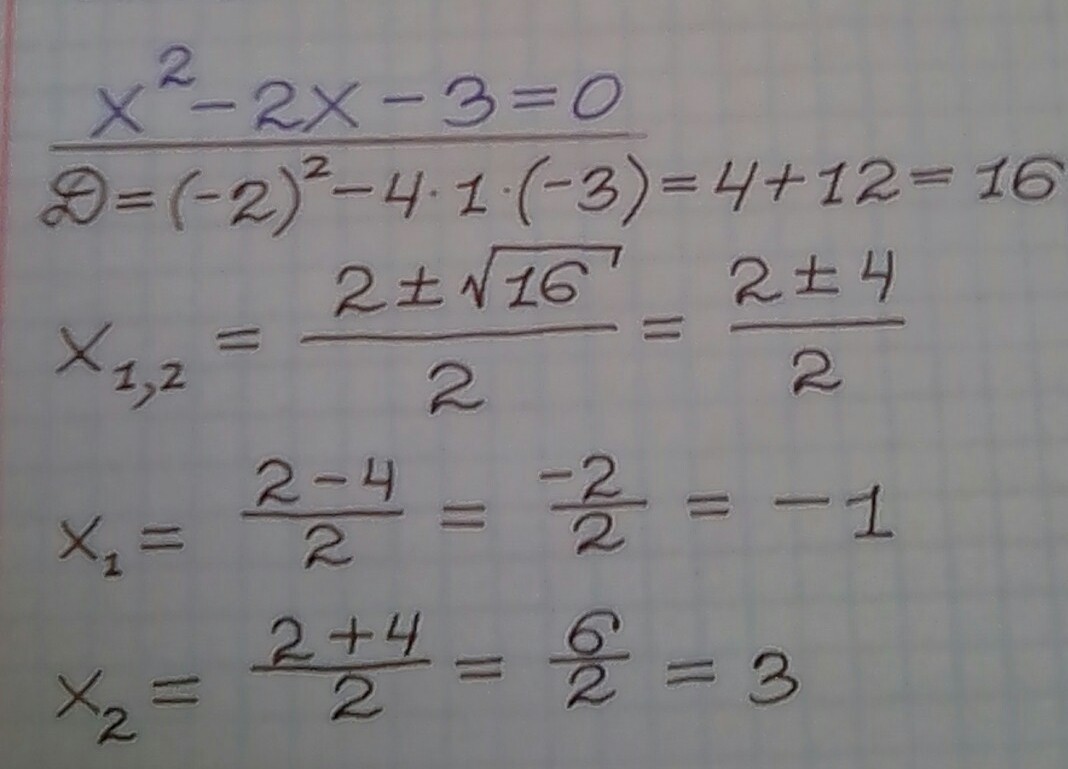 x² - 2x - 3 = 0
D = (-2)² - 4 · 1 · (-3) = 4 + 12 = 16
x₁,₂ = (2 ± √16)/2 = (2 ± 4)/2
x₁ = (2 - 4)/2 = -2/2 = -1
x₂ = (2 + 4)/2 = 6/2 = 3